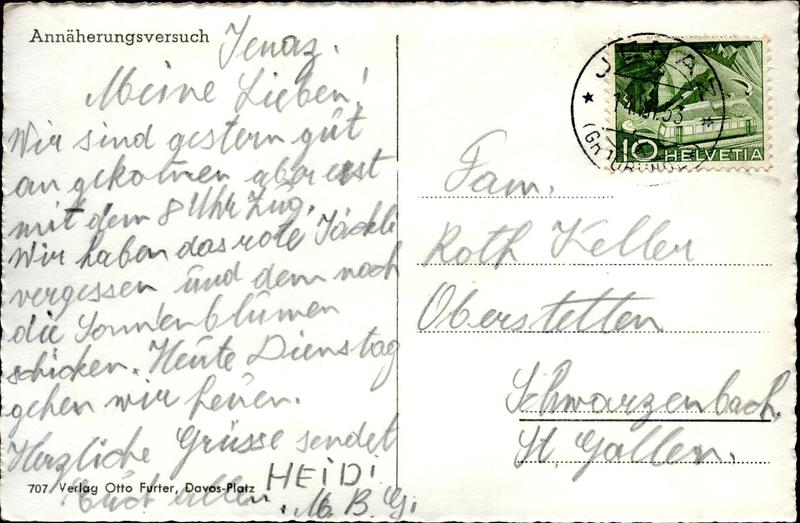 Annäherungsversuch
Jenaz.
Meine Lieben!
Wir sind gestern gut
an gekommen aber erst
mit dem 8 Uhr Zug.
Wir haben das rote Jäckli
vergessen und dem noch
die Sonnenblumen
schicken. Heute Dienstag
gehen wir heuen.
Herzliche Grüsse sendet
Euch allen HEIDI
. M. B. G.
707 Verlag Otto Furter, Davos-Platz
JENAZ
(GRAUBÜNDEN)
10 HELVETIA
Fam.
Roth Keller
Oberstetten
Schwarzenbach.
St. Gallen.